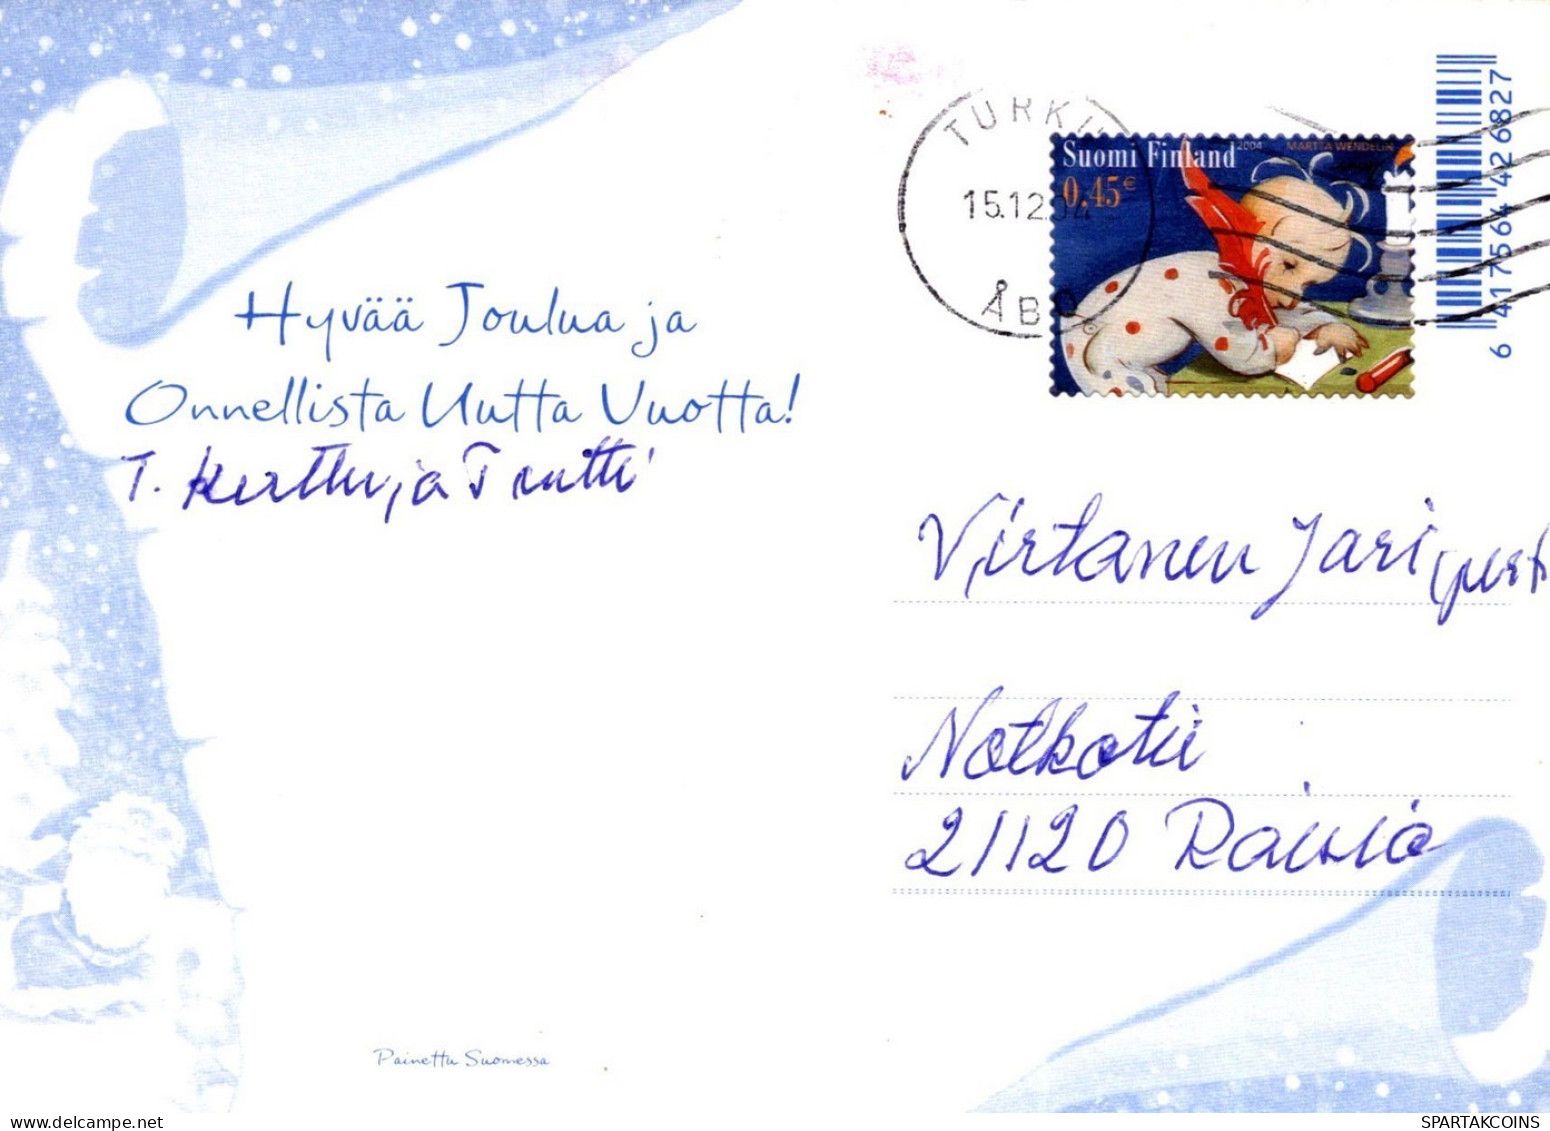 TURKU
15.12.04
ÅBO
Suomi Finland 2004 MARTTA WENDELIN
0,45€
6 417564 426827
Hyvää Joulua ja
Onnellista Uutta Vuotta!
T. Kerttu ja Pentti
Virtanen Jari
Notkotie
21120 Raisio
Painettu Suomessa
delcampe.net
SPARTAKCOINS